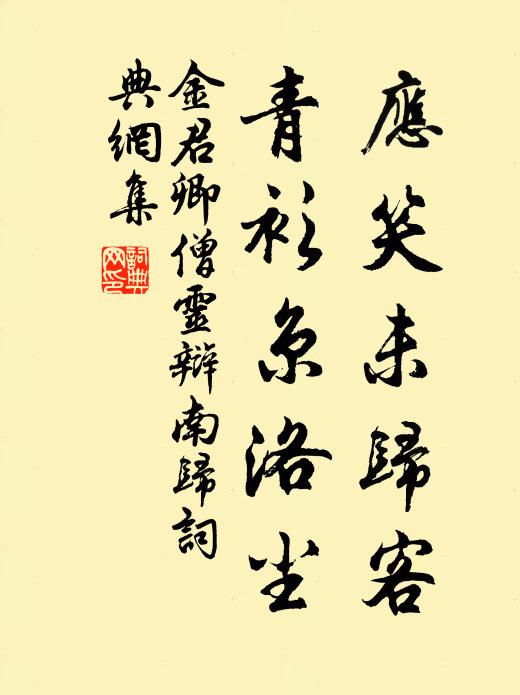 應笑未歸客
青衫京洛塵
金君卿僧靈辯南歸詞
典網集
詞典
網印